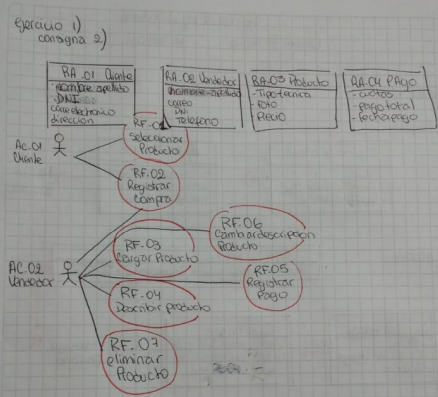 ejercicio 1)
consigna 2)
RA.01 Cliente
-nombre-apellido
-DNI
correo electronico
direccion
RA.02 Vendedor
nombre-apellido
correo
DNI
Telefono
RA.03 Producto
-Tipo tecnica
-foto
-Precio
RA.04 PAgo
-cuotas
-pago total
-fecha pago
AC.01
Cliente
RF.01
seleccionar
Producto
RF.02
Registrar
compra
AC.02
Vendedor
RF.06
Cambiar descripcion
Producto
RF.03
Cargar Producto
RF.05
Registrar
Pago
RF.04
Describir producto
RF.07
eliminar
Producto